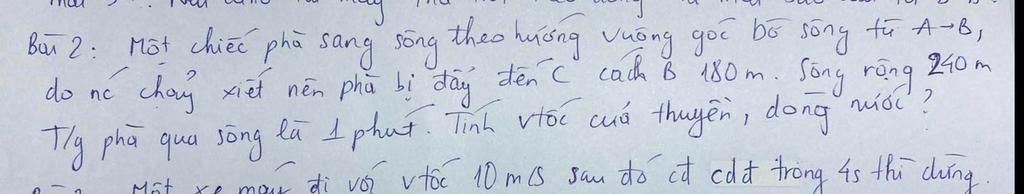 Bài 2: Một chiếc phà sang sông theo hướng vuông góc bờ sông từ A→B,
do nc chảy xiết nên phà bị đẩy đến C cách B 180m. Sông rộng 240m
T/g phà qua sông là 1 phút. Tính vtốc cuả thuyền, dòng nước?
Một xe máy đi với vtốc 10 m/s sau đó cđ cdđ trong 4s thì dừng.